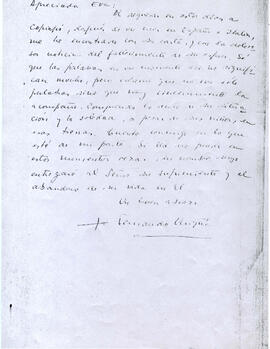 Apreciada Eva:
Al regresar en estos días a
Copiapó, después de un mes en España e Italia,
me he encontrado con su carta, y con la dolorosa
noticia del fallecimiento de su esposo. Sé
que las palabras en un momento así no significan
mucho, pero créame que no son sólo
palabras sino que muy sinceramente la
acompaño. Comprendo lo duro de su situación
y la soledad, a pesar de sus niños, en
esas tierras. Cuente conmigo en lo que
esté de mi parte. Si Ud. no puede en
estos momentos rezar, su nombre
entregaré al Señor su sufrimiento y el
abandono de su vida en El
Un buen abrazo
+ Fernando